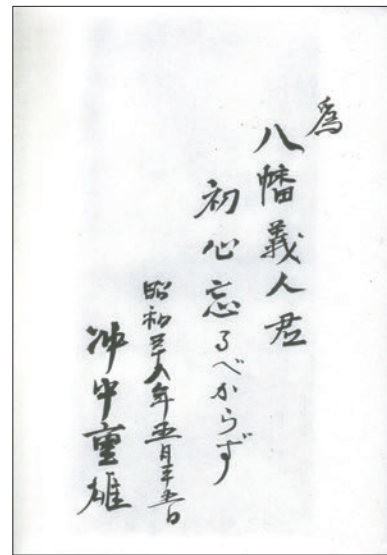 爲
八幡義人君
初心忘るべからず
昭和五十八年五月二十五日
冲中重雄